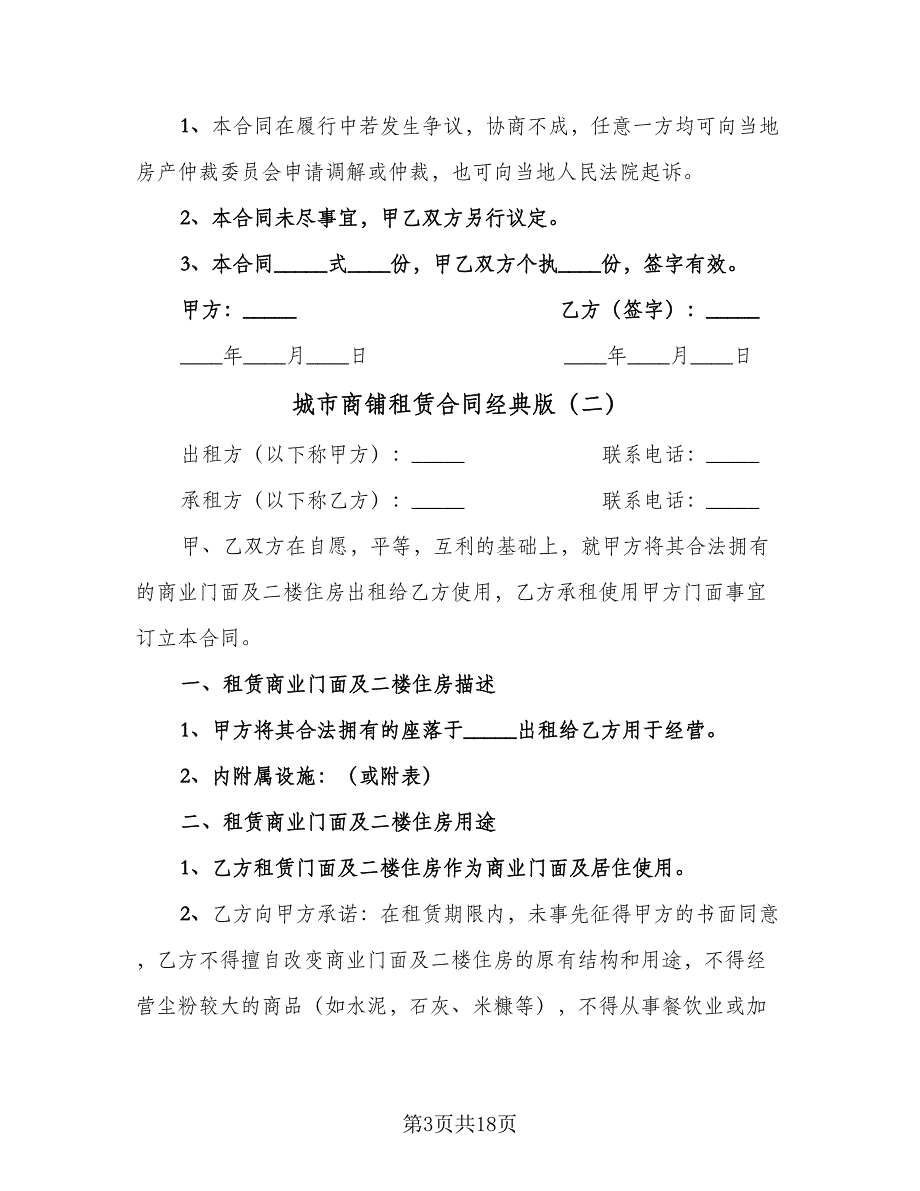 1、本合同在履行中若发生争议，协商不成，任意一方均可向当地
房产仲裁委员会申请调解或仲裁，也可向当地人民法院起诉。
2、本合同未尽事宜，甲乙双方另行议定。
3、本合同_____式____份，甲乙双方个执____份，签字有效。
甲方：_____ 乙方（签字）：_____
____年____月____日 ____年____月____日
城市商铺租赁合同经典版（二）
出租方（以下称甲方）：_____ 联系电话：_____
承租方（以下称乙方）：_____ 联系电话：_____
甲、乙双方在自愿，平等，互利的基础上，就甲方将其合法拥有
的商业门面及二楼住房出租给乙方使用，乙方承租使用甲方门面事宜
订立本合同。
一、租赁商业门面及二楼住房描述
1、甲方将其合法拥有的座落于_____出租给乙方用于经营。
2、内附属设施：（或附表）
二、租赁商业门面及二楼住房用途
1、乙方租赁门面及二楼住房作为商业门面及居住使用。
2、乙方向甲方承诺：在租赁期限内，未事先征得甲方的书面同意
，乙方不得擅自改变商业门面及二楼住房的原有结构和用途，不得经
营尘粉较大的商品（如水泥，石灰、米糠等），不得从事餐饮业或加
第3页共18页